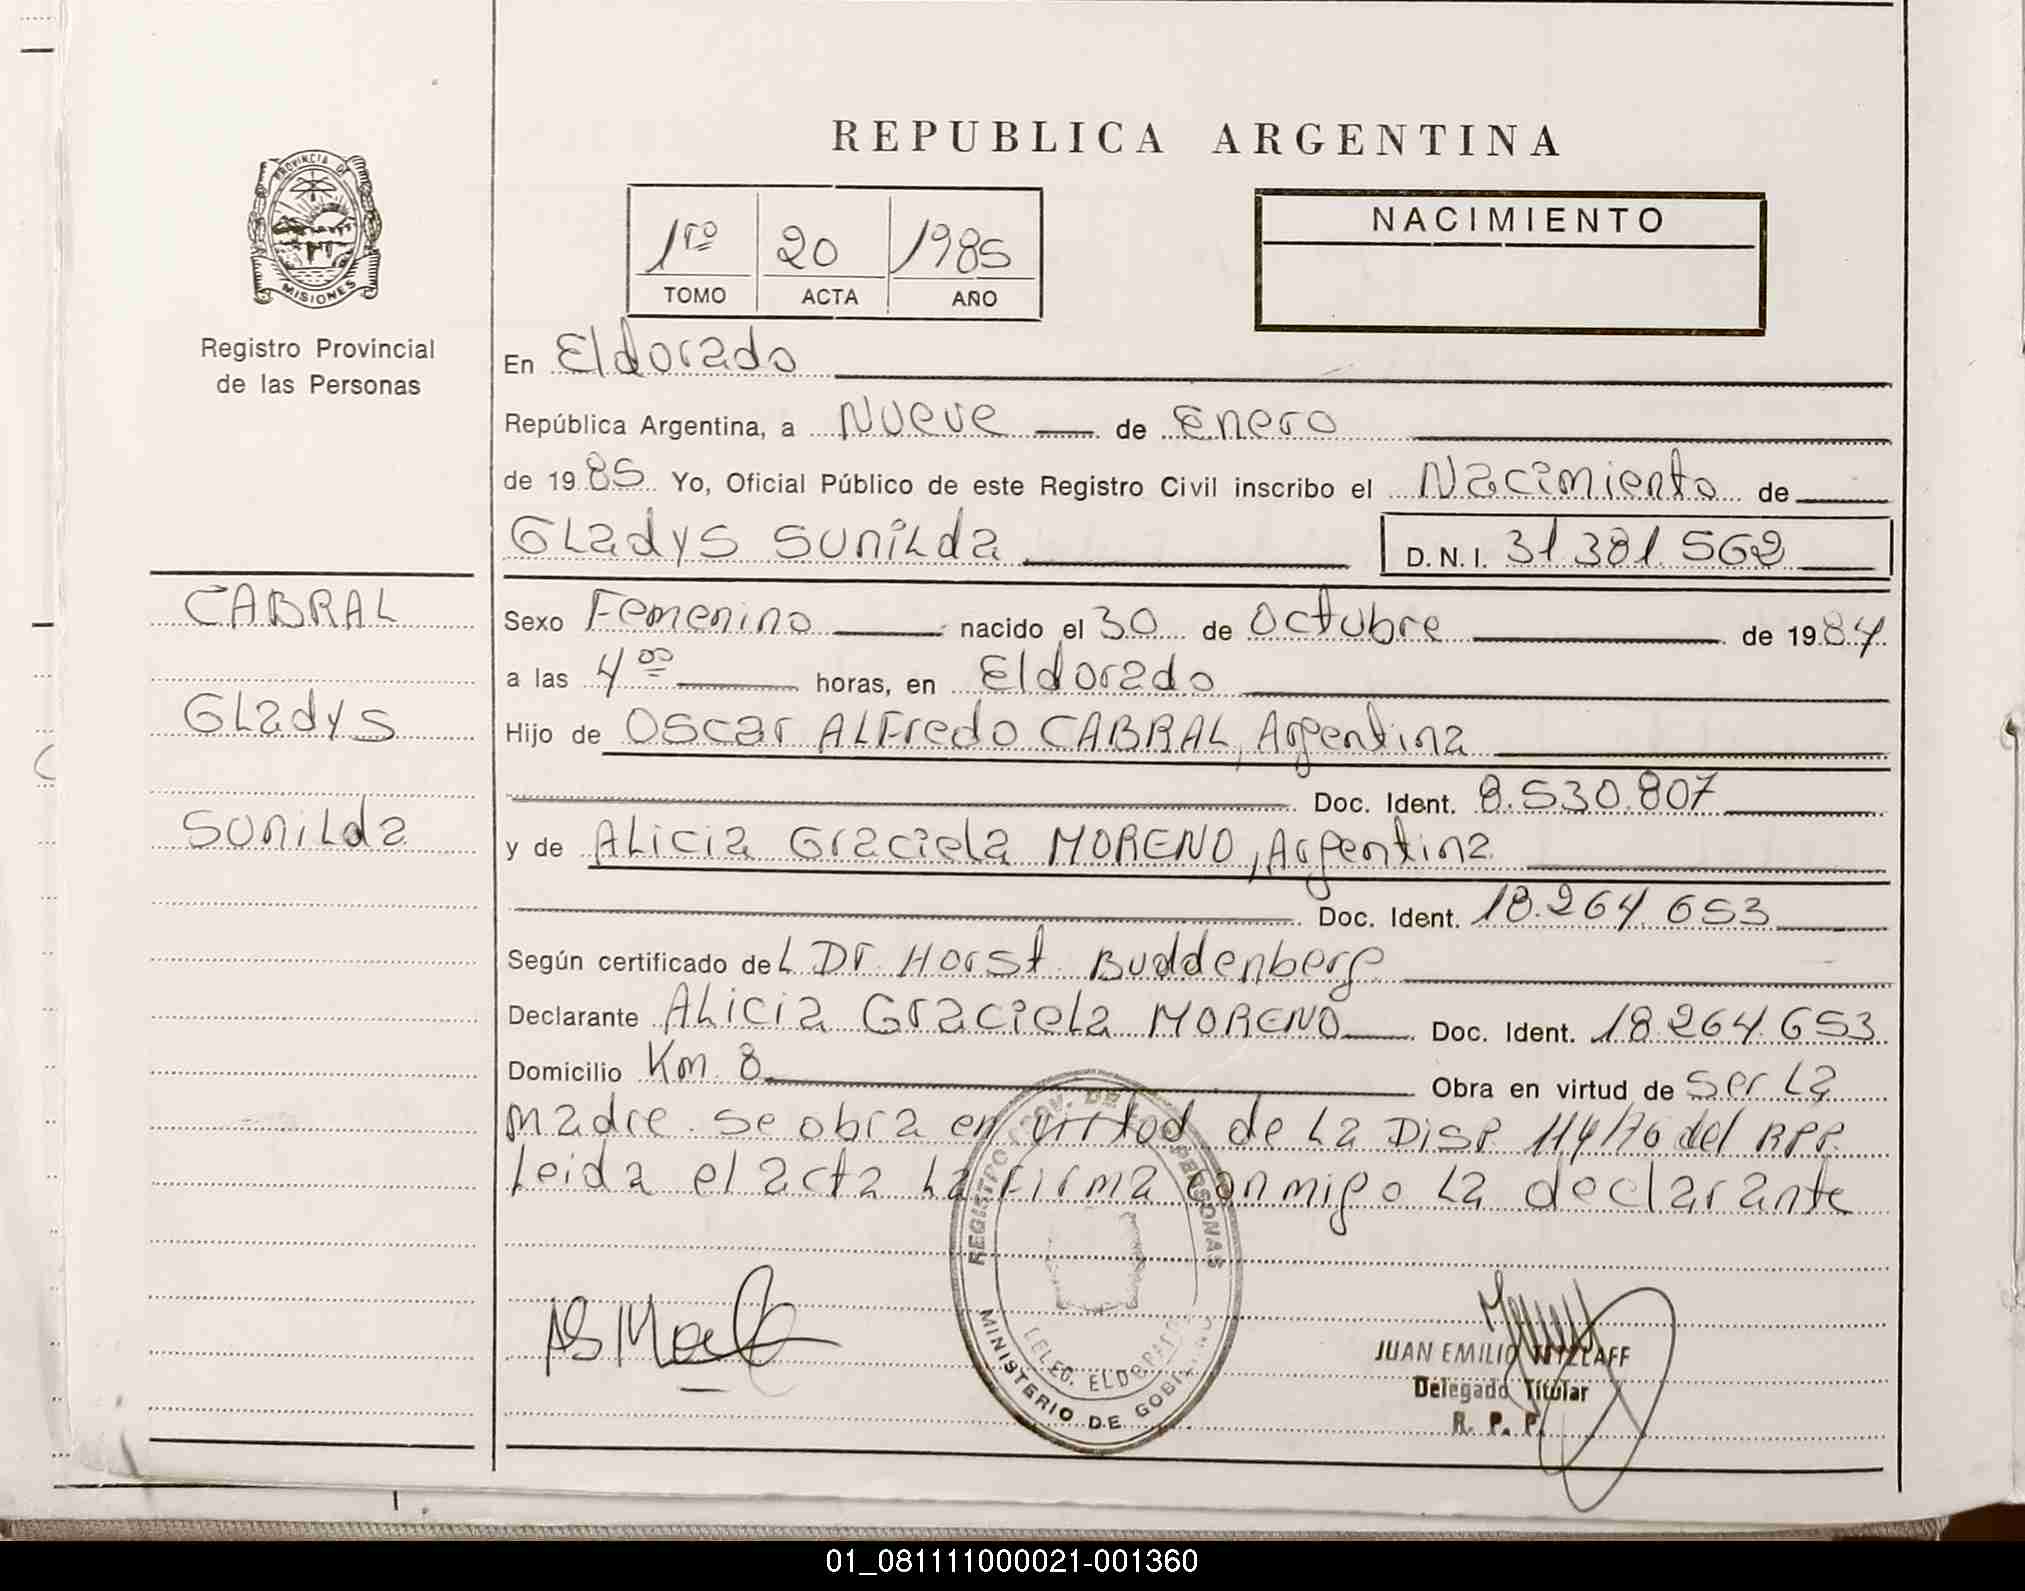 REPUBLICA ARGENTINA
PROVINCIA DE
MISIONES
Registro Provincial
de las Personas
1ro 20 1985
TOMO ACTA AÑO
NACIMIENTO
En Eldorado
República Argentina, a Nueve de Enero
de 1985 Yo, Oficial Público de este Registro Civil inscribo el Nacimiento de
GLadys SuniLda D.N.I. 31 381 562
CABRAL
GLadys
SuniLda
Sexo Femenino nacido el 30 de Octubre de 1984
a las 4 00 horas, en Eldorado
Hijo de Oscar ALFredo CABRAL, Argentina
Doc. Ident. 8.530.807
y de ALicia Graciela MORENO, Argentina
Doc. Ident. 18.264.653
Según certificado deL Dr. Horst Buddenberg
Declarante ALicia GracieLa MORENO Doc. Ident. 18.264.653
Domicilio Km 8 Obra en virtud de Ser La
madre. Se obra en virtud de La Disp 114/76 del RPP.
Leida el acta La Firma conmigo La declarante
REGISTRO PROV. DE LAS PERSONAS
DELEG. ELDORADO
MINISTERIO DE GOBIERNO
JUAN EMILIO TETZLAFF
Delegado Titular
R. P. P.
01_081111000021-001360